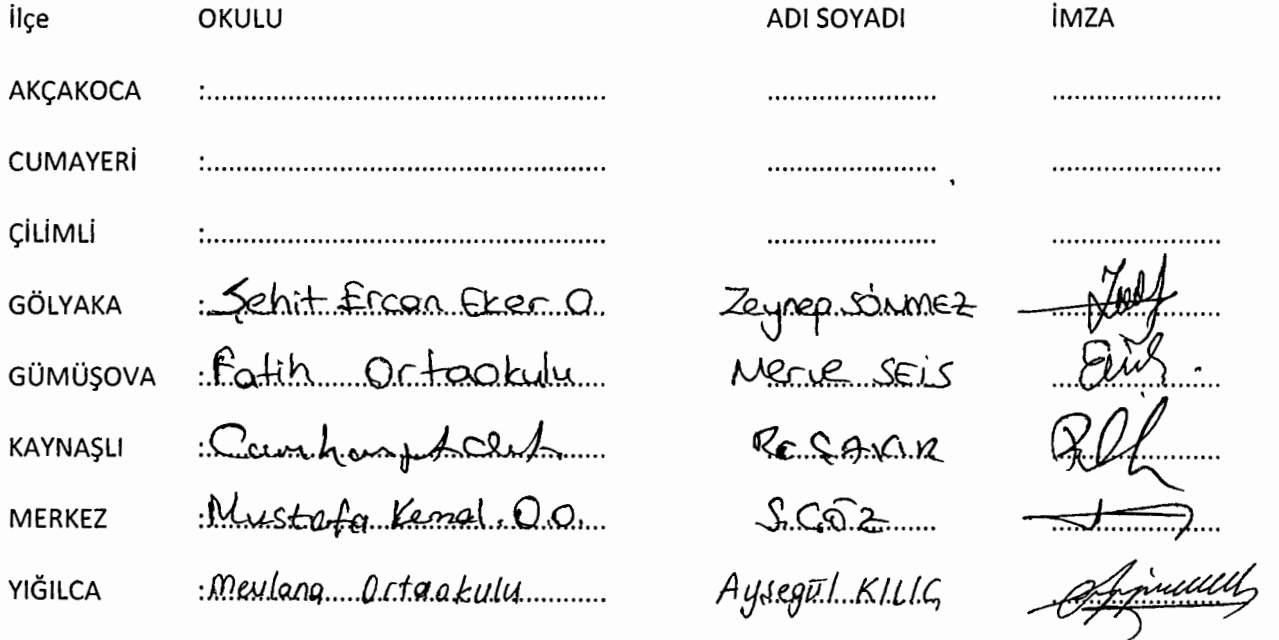 İlçe OKULU ADI SOYADI İMZA
AKÇAKOCA :...................................................... ....................... .......................
CUMAYERİ :...................................................... ....................... .......................
ÇİLİMLİ :...................................................... ....................... .......................
GÖLYAKA : Şehit Ercan Eker O. Zeynep SÖNMEZ
GÜMÜŞOVA : Fatih Ortaokulu Merve SEİS
KAYNAŞLI : ÇAKIR
MERKEZ : Mustafa Kemal O.O. S. CÖZ
YIĞILCA : Mevlana Ortaokulu Ayşegül KILIÇ